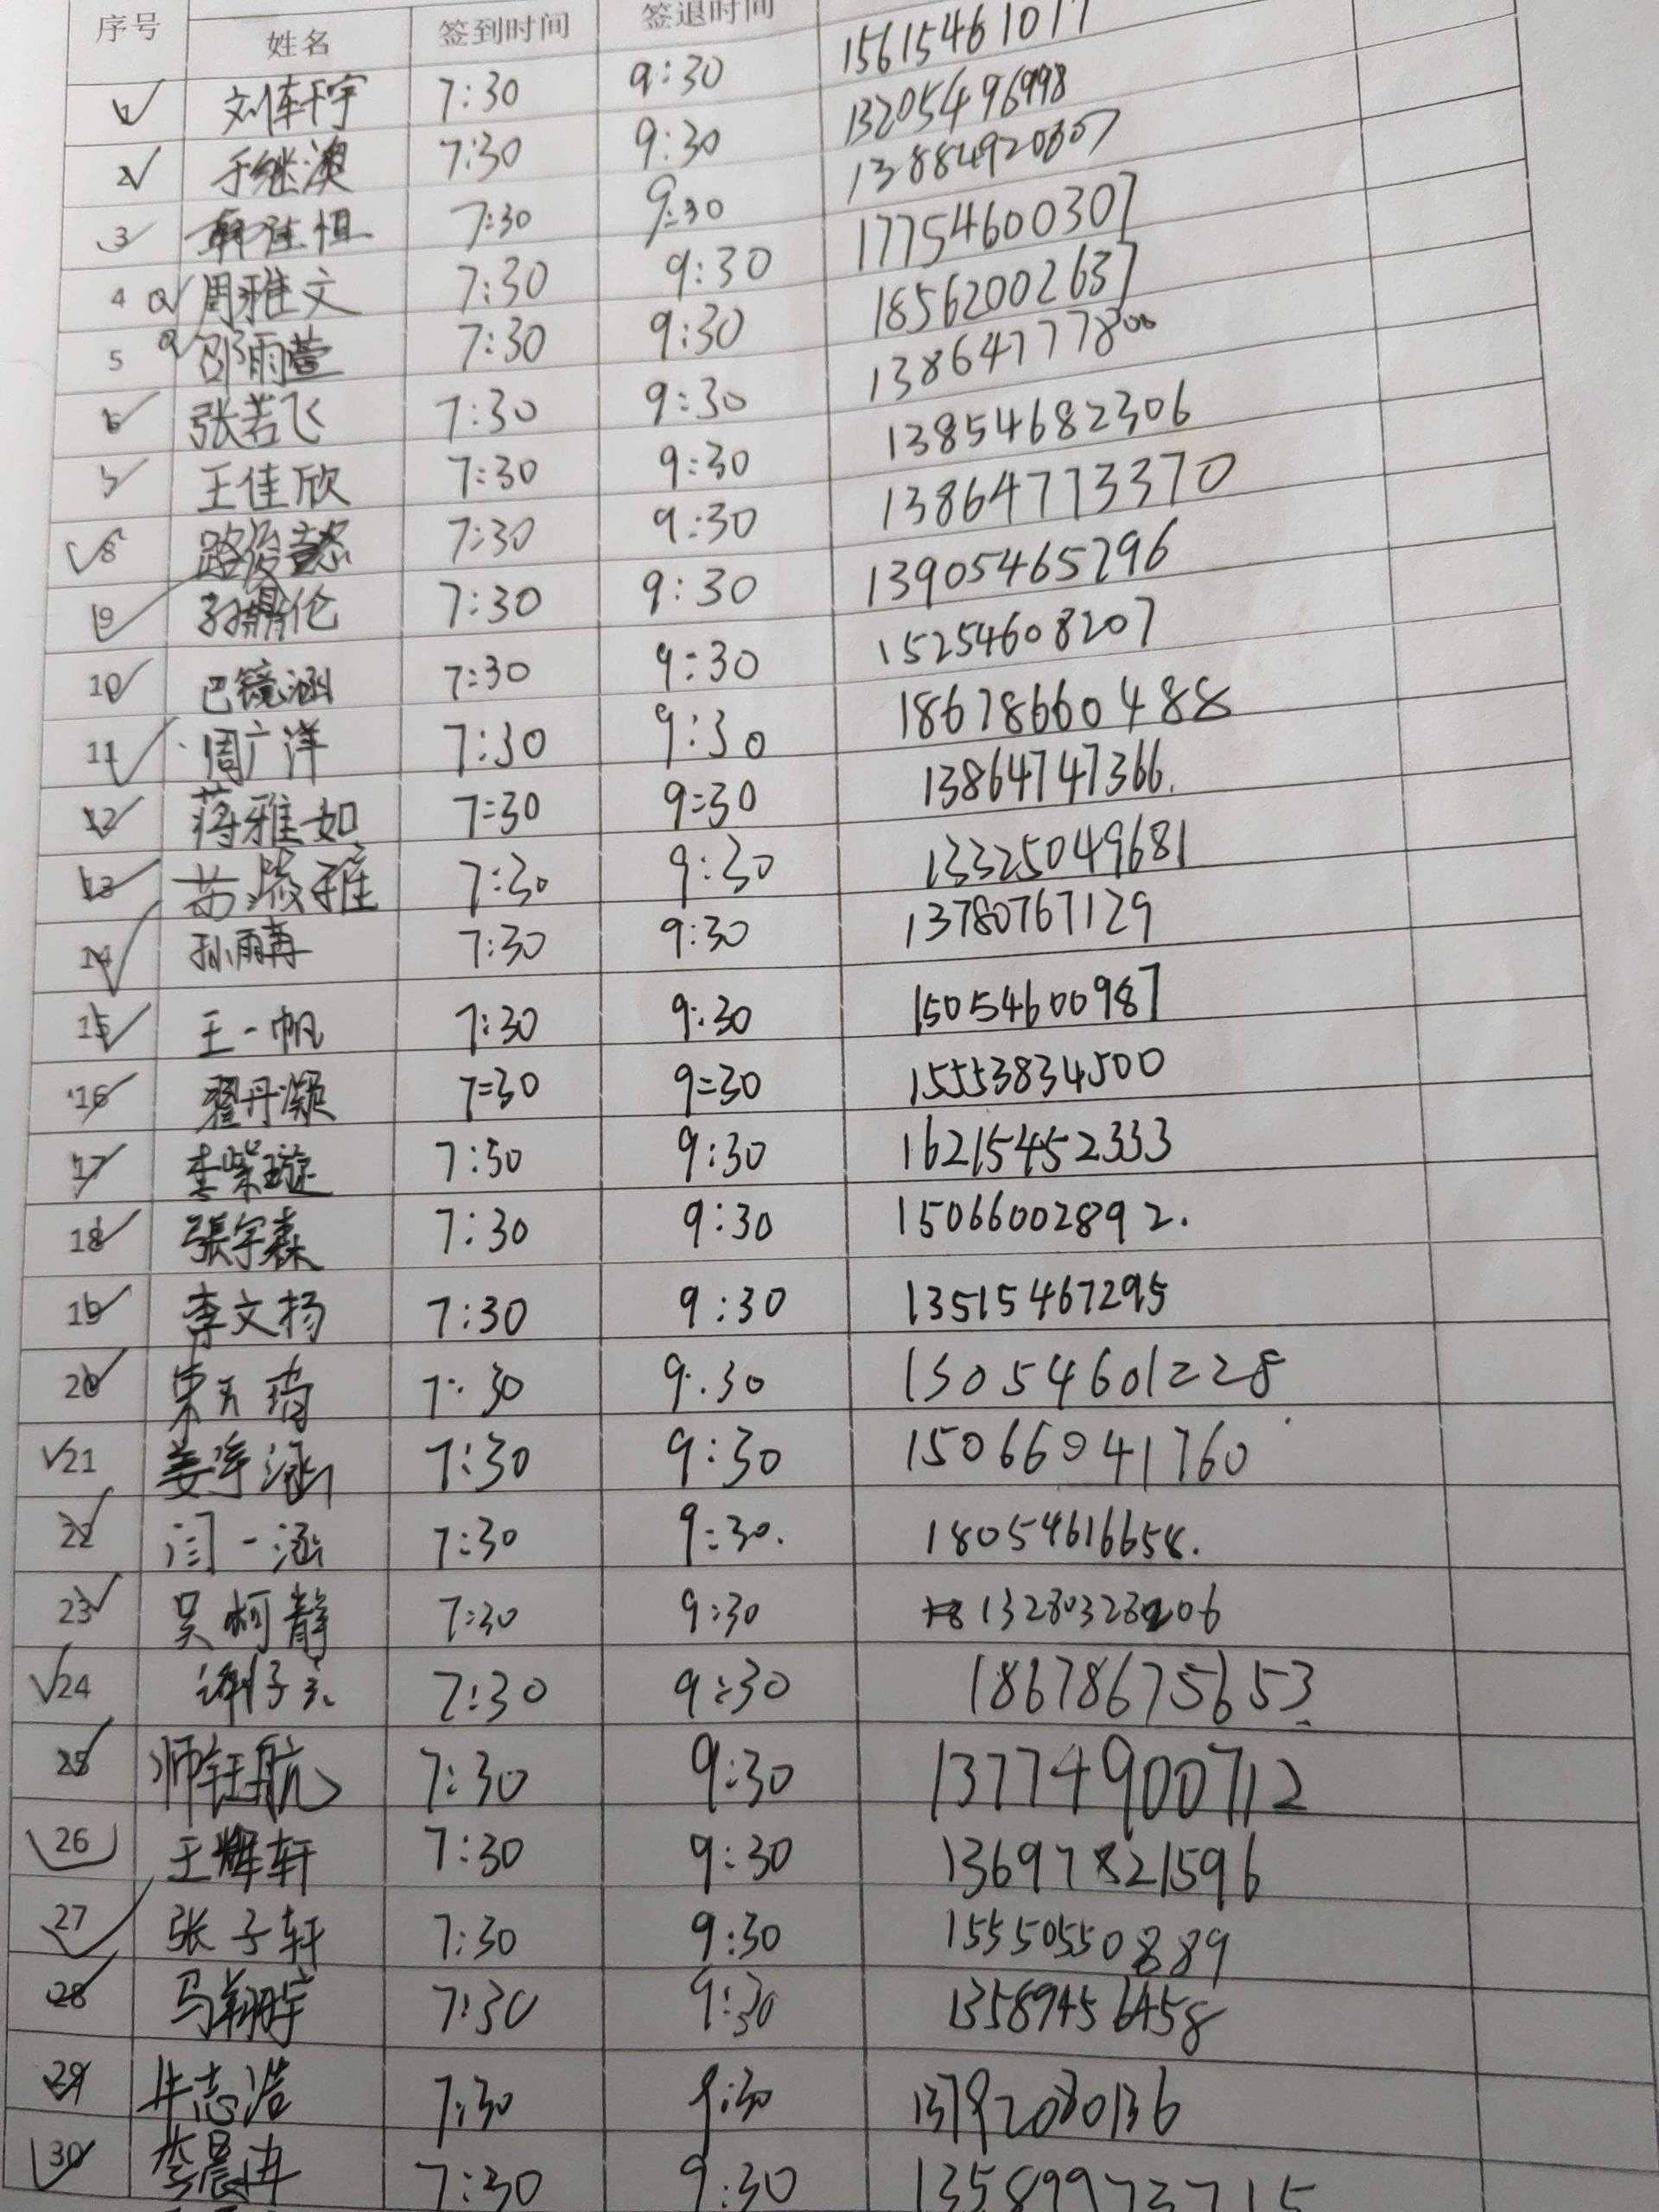 序号 姓名 签到时间 签退时间
1 7:30 9:30 15615461017
2 于继澳 7:30 9:30 13205496998
3 7:30 9:30 13884920607
4 周雅文 7:30 9:30 17754600307
5 邵雨萱 7:30 9:30 18562002637
6 张若飞 7:30 9:30 13864777800
7 王佳欣 7:30 9:30 13854682306
8 路俊懿 7:30 9:30 13864773370
9 孙鼎伦 7:30 9:30 13905465296
10 巴镜涵 7:30 9:30 15254608207
11 周广洋 7:30 9:30 18678660488
12 蒋雅如 7:30 9:30 13864747366.
13 7:30 9:30 13325049681
14 7:30 9:30 13780767129
15 王一帆 7:30 9:30 15054600987
16 翟丹凝 7:30 9:30 15553834500
17 李紫璇 7:30 9:30 16215452333
18 張宇森 7:30 9:30 15066002892.
19 李文扬 7:30 9:30 13515467295
20 7:30 9:30 15054601228
21 姜泽涵 7:30 9:30 15066041760
22 闫一涵 7:30 9:30. 18054616658.
23 吴柯静 7:30 9:30 13280328206
24 7:30 9:30 18678675653
25 师钰航 7:30 9:30 13774900712
26 王辉轩 7:30 9:30 13697821596
27 张子轩 7:30 9:30 15550550889
28 马翔宇 7:30 9:30 13589456458
29 牛志浩 7:30 9:30 13792080136
30 李晨冉 7:30 9:30 13589973715